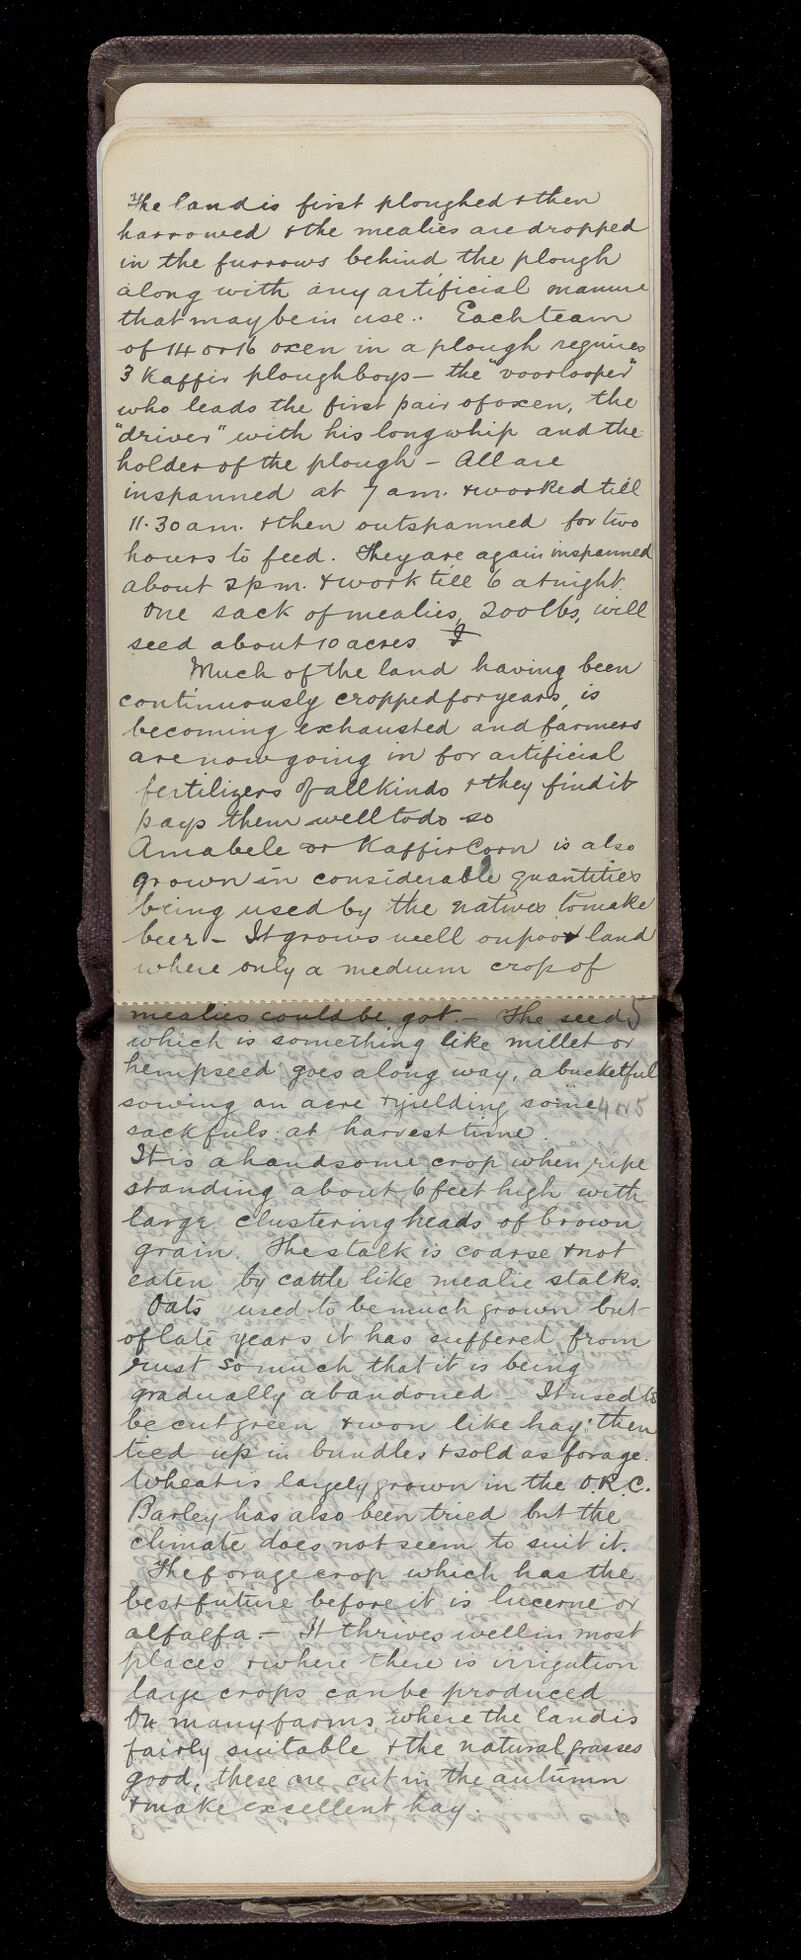 The land is first ploughed & then
harrowed & the mealies are dropped
in the furrows behind the plough
along with any artificial manure
that may be in use.. Each team
of 14 or 16 oxen in a plough requires
3 Kaffir ploughboys — the "voorlooper"
who leads the first pair of oxen, the
"driver" with his long whip and the
holder of the plough — All are
inspanned at 7 am. & worked till
11.30 am. & then outspanned for two
hours to feed. They are again inspanned
about 2 pm. & work till 6 at night.
One sack of mealies, 200 lbs, will
seed about 10 acres.
Much of the land having been
continuously cropped for years, is
becoming exhausted and farmers
are now going in for artificial
fertilizers of all kinds & they find it
pays them well to do so
Amabele or Kaffir Corn is also
grown in considerable quantities
being used by the natives to make
beer — It grows well on poor land
where only a medium crop of
mealies could be got. — The seed 5
which is something like millet or
hempseed goes a long way, a bucketful
sowing an acre & yielding some 4 or 5
sackfuls at harvest time.
It is a handsome crop when ripe
standing about 6 feet high with
large clustering heads of brown
grain. The stalk is coarse & not
eaten by cattle like mealie stalks.
Oats used to be much grown but
of late years it has suffered from
rust so much that it is being
gradually abandoned It used to
be cut green & won like hay: then
tied up in bundles & sold as forage.
Wheat is largely grown in the O.R.C.
Barley has also been tried but the
climate does not seem to suit it.
The forage crop which has the
best future before it is lucerne or
alfalfa. — It thrives well in most
places & where there is irrigation
large crops can be produced
On many farms where the land is
fairly suitable & the natural grasses
good, these are cut in the autumn
& make excellent hay.